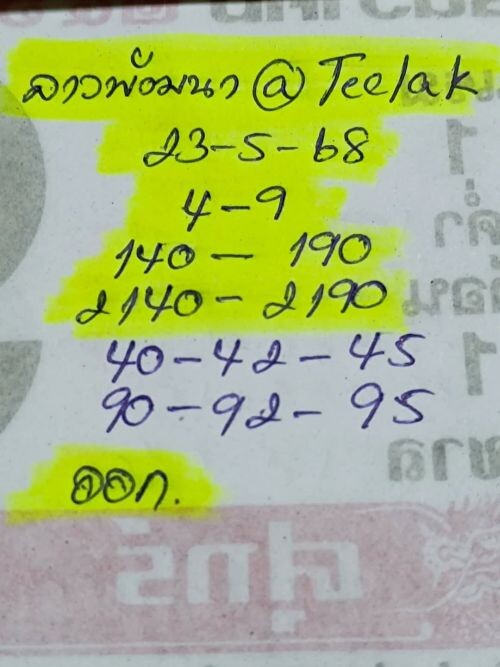 ลาวพัฒนา @ Teelak
23-5-68
4-9
140 - 190
2140 - 2190
40-42-45
90-92-95
ออก.